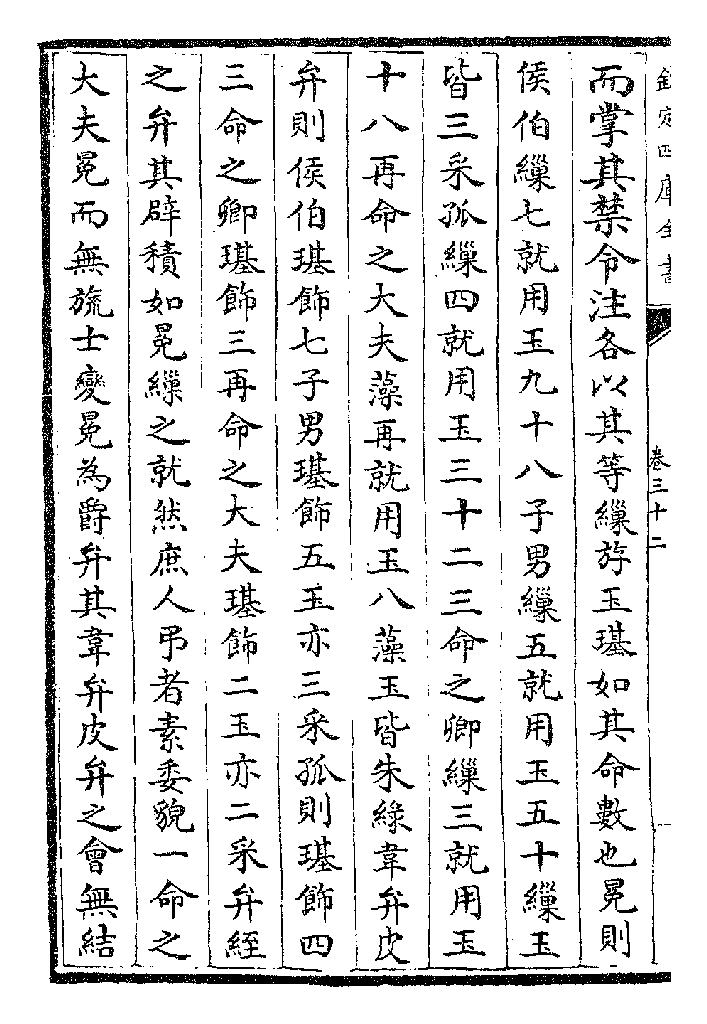 欽定四庫全書
卷三十二
而掌其禁令注各以其等繅斿玉璂如其命數也冕則
侯伯繅七就用玉九十八子男繅五就用玉五十繅玉
皆三采孤繅四就用玉三十二三命之卿繅三就用玉
十八再命之大夫藻再就用玉八藻玉皆朱綠韋弁皮
弁則侯伯璂飾七子男璂飾五玉亦三采孤則璂飾四
三命之卿璂飾三再命之大夫璂飾二玉亦二采弁絰
之弁其辟積如冕繅之就然庶人弔者素委貌一命之
大夫冕而無旒士變冕為爵弁其韋弁皮弁之會無結